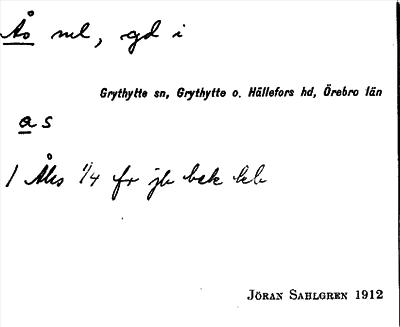 Ås ml, gd i
Grythytte sn, Grythytte o. Hällefors hd, Örebro län
as
1 Åks 1/4 fr jb bek kb
JÖRAN SAHLGREN 1912